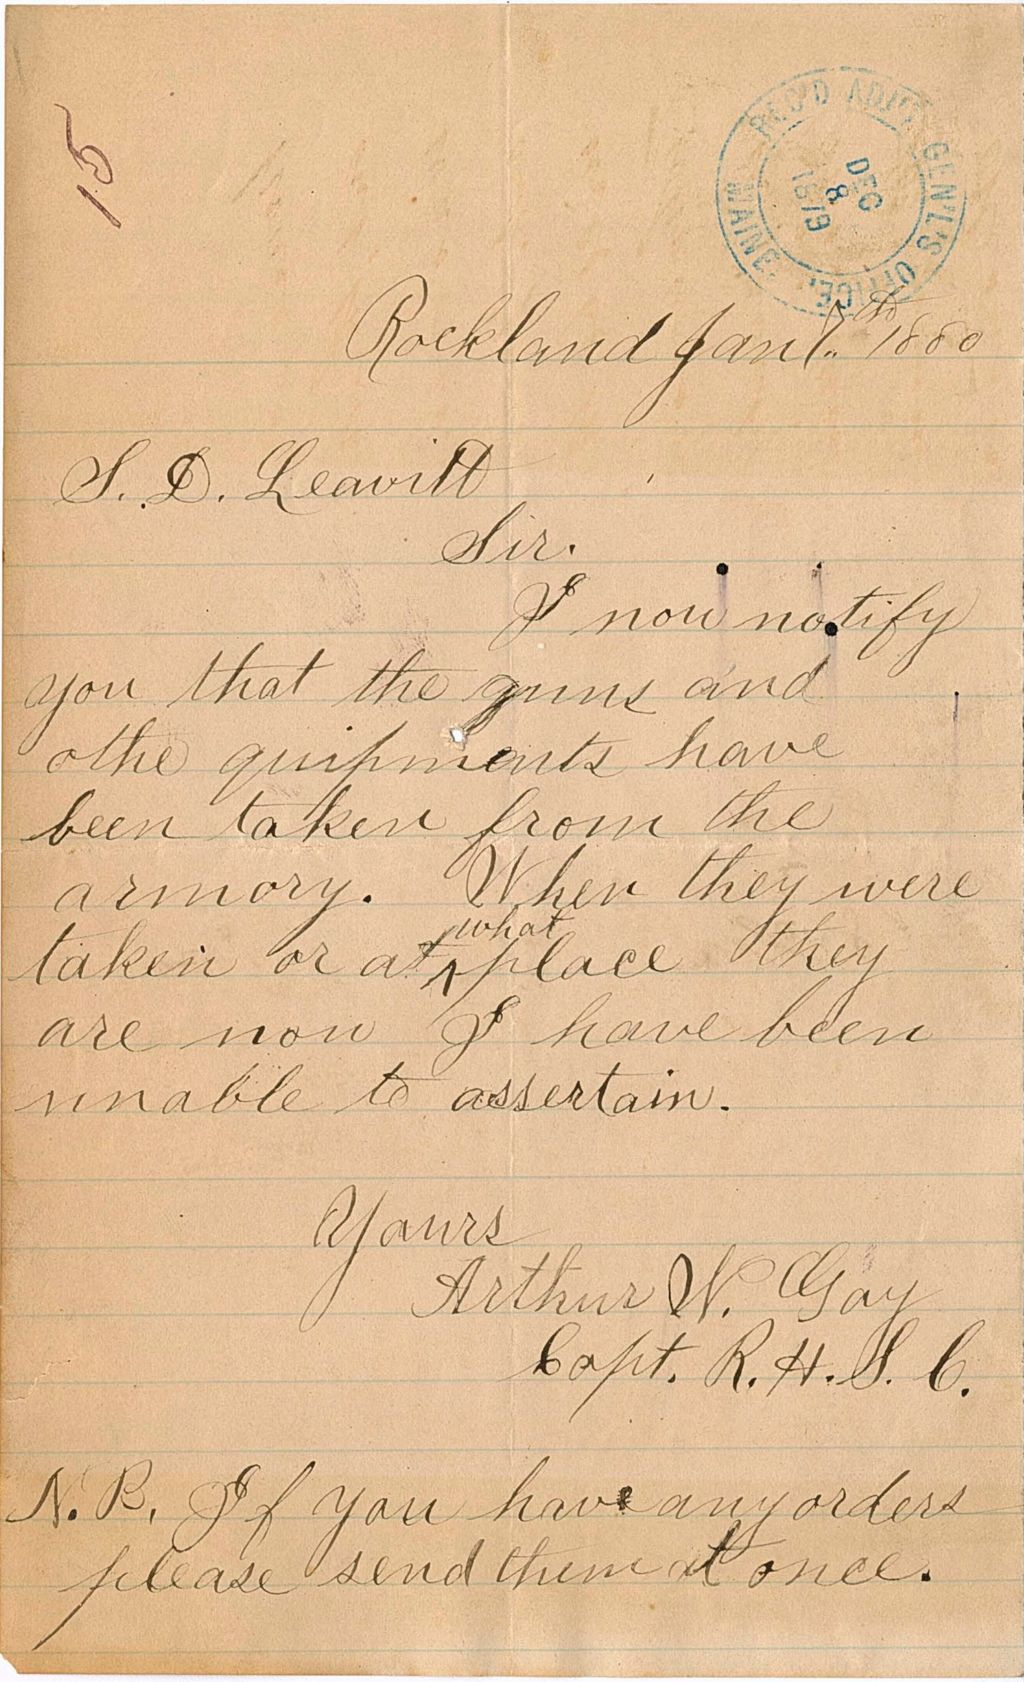 15
REC'D ADJ'T GEN'L'S OFFICE, MAINE.
DEC
8
1879
Rockland Jan 7th 1880
S. D. Leavitt
Sir.
I now notify
you that the guns and
othe quipments have
been taken from the
armory. When they were
taken or at what place they
are now I have been
unable to assertain.
Yours
Arthur W. Gay
Capt. R. H. S. C.
N. B. If you have any orders
please send them at once.